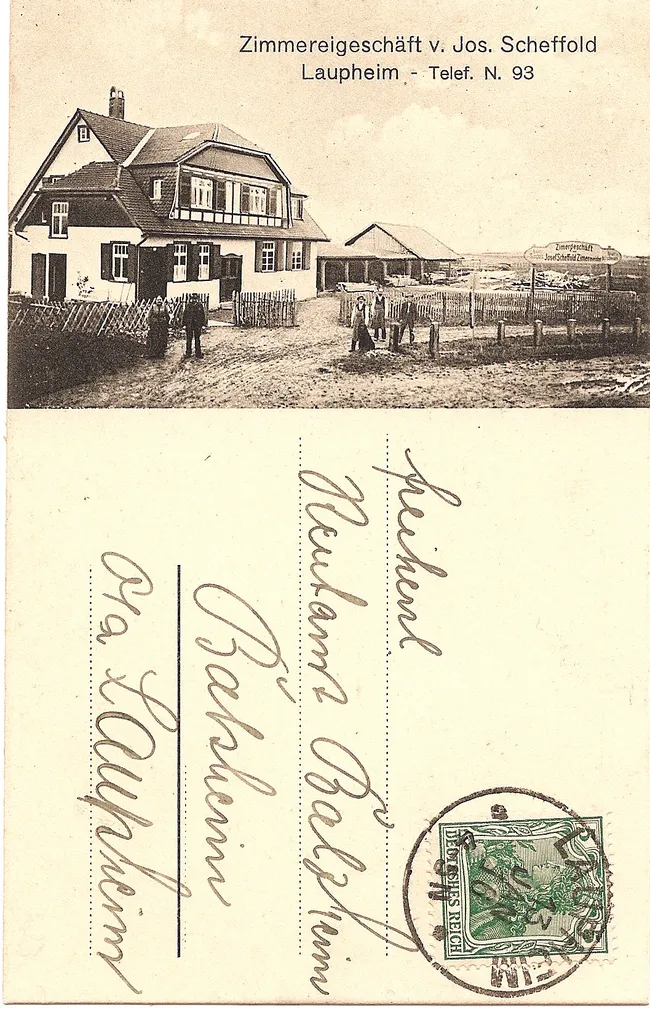 Zimmereigeschäft v. Jos. Scheffold
Laupheim - Telef. N. 93
Zimergeschäft
Josef Scheffold Zimermeister
freiherrl
Rentamt Balzheim
Balzheim
O/A Laupheim
DEUTSCHES REICH
LAUPHEIM
13
JAN